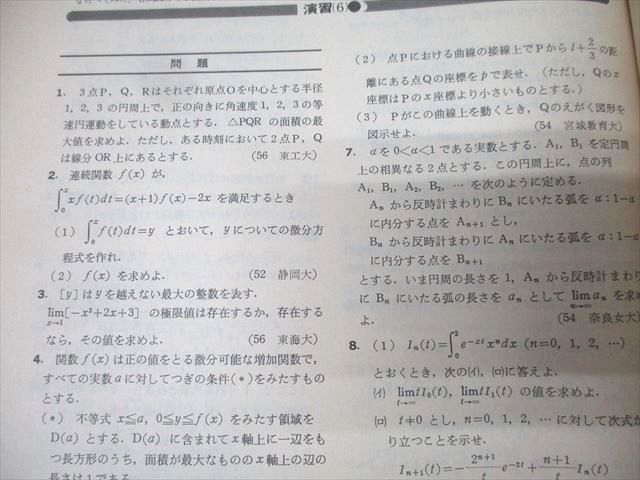 演習(6)
問題
1. 3点P, Q, Rはそれぞれ原点Oを中心とする半径
1, 2, 3 の円周上で，正の向きに角速度 1, 2, 3 の等
速円運動をしている動点とする．△PQR の面積の最
大値を求めよ．ただし，ある時刻において2点P, Q
は線分 OR 上にあるとする． (56 東工大)
2. 連続関数 f(x) が，
∫₀ˣ xf(t)dt=(x+1)f(x)−2x を満足するとき
(1) ∫₀ˣ f(t)dt=y とおいて，yについての微分方
程式を作れ．
(2) f(x) を求めよ． (52 静岡大)
3. [y] はyを越えない最大の整数を表す．
lim[−x²+2x+3] の極限値は存在するか，存在する
x→1
なら，その値を求めよ． (56 東海大)
4. 関数 f(x) は正の値をとる微分可能な増加関数で，
すべての実数 a に対してつぎの条件(*)をみたすもの
とする．
(*) 不等式 x≦a, 0≦y≦f(x) をみたす領域を
D(a) とする．D(a) に含まれてx軸上に一辺をも
つ長方形のうち，面積が最大なもののx軸上の辺の
長さは1である．
(2) 点Pにおける曲線の接線上でPから l+2/3 の距
離にある点Qの座標をpで表せ．（ただし，Qのx
座標はPのx座標より小さいものとする．）
(3) Pがこの曲線上を動くとき，Qのえがく図形を
図示せよ． (54 宮城教育大)
7. αを 0<α<1 である実数とする．A₁, B₁ を定円周
上の相異なる2点とする．この円周上に，点の列
A₁, B₁, A₂, B₂, … を次のように定める．
Aₙ から反時計まわりに Bₙ にいたる弧を α:1−α
に内分する点を Aₙ₊₁ とし，
Bₙ から反時計まわりに Aₙ にいたる弧を α:1−α
に内分する点を Bₙ₊₁
とする．いま円周の長さを 1，Aₙ から反時計まわり
に Bₙ にいたる弧の長さを aₙ として lim aₙ を求め
n→∞
よ． (54 奈良女大)
8. (1) Iₙ(t)=∫₀² e⁻ˣᵗxⁿdx (n=0, 1, 2, …)
とおくとき，次の(イ), (ロ)に答えよ．
(イ) lim tI₀(t), lim tI₁(t) の値を求めよ．
t→∞ t→∞
(ロ) t≠0 とし，n=0, 1, 2, … に対して次式が
り立つことを示せ．
Iₙ₊₁(t)=−2ⁿ⁺¹/t e⁻²ᵗ+n+1/t Iₙ(t)